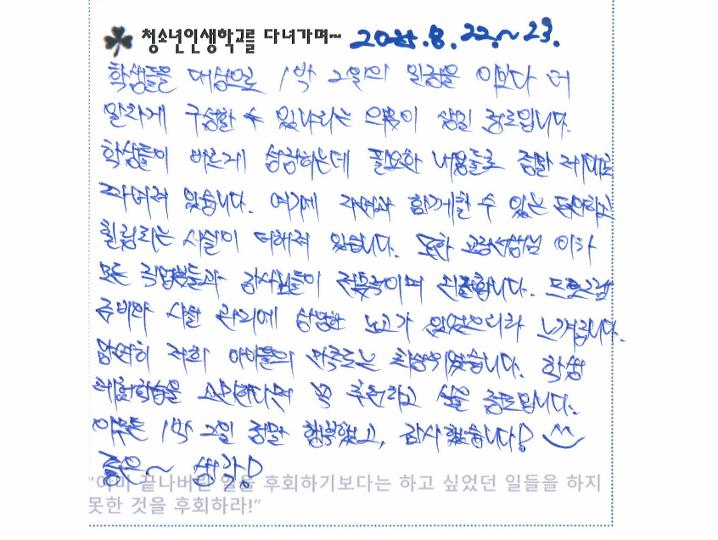 청소년인생학교를 다녀가며~ 8. 22.~23.
학생들을 대상으로 1박 2일의 일정을 이보다 더
알차게 구성할 수 있나라는 의문이 생길 정도입니다.
학생들이 바르게 성장하는데 필요한 내용들로 정말 제대로
짜여져 있습니다. 여기에 자연과 함께할 수 있는
힐링되는 시설이 더해져 있습니다. 또한 교장선생님 이하
모든 직업분들과 강사님들이 전문적이며 친절합니다. 프로그램
준비와 시설 관리에 상당한 노고가 있었으리라 느껴집니다.
당연히 저희 아이들의 만족도는 최상이었습니다. 학생
체험학습을 고민한다면 꼭 추천하고 싶을 정도입니다.
아무튼 1박 2일 정말 행복했고, 감사했습니다!
좋은~ 생각!
"이미 끝나버린 일을 후회하기보다는 하고 싶었던 일들을 하지
못한 것을 후회하라!"